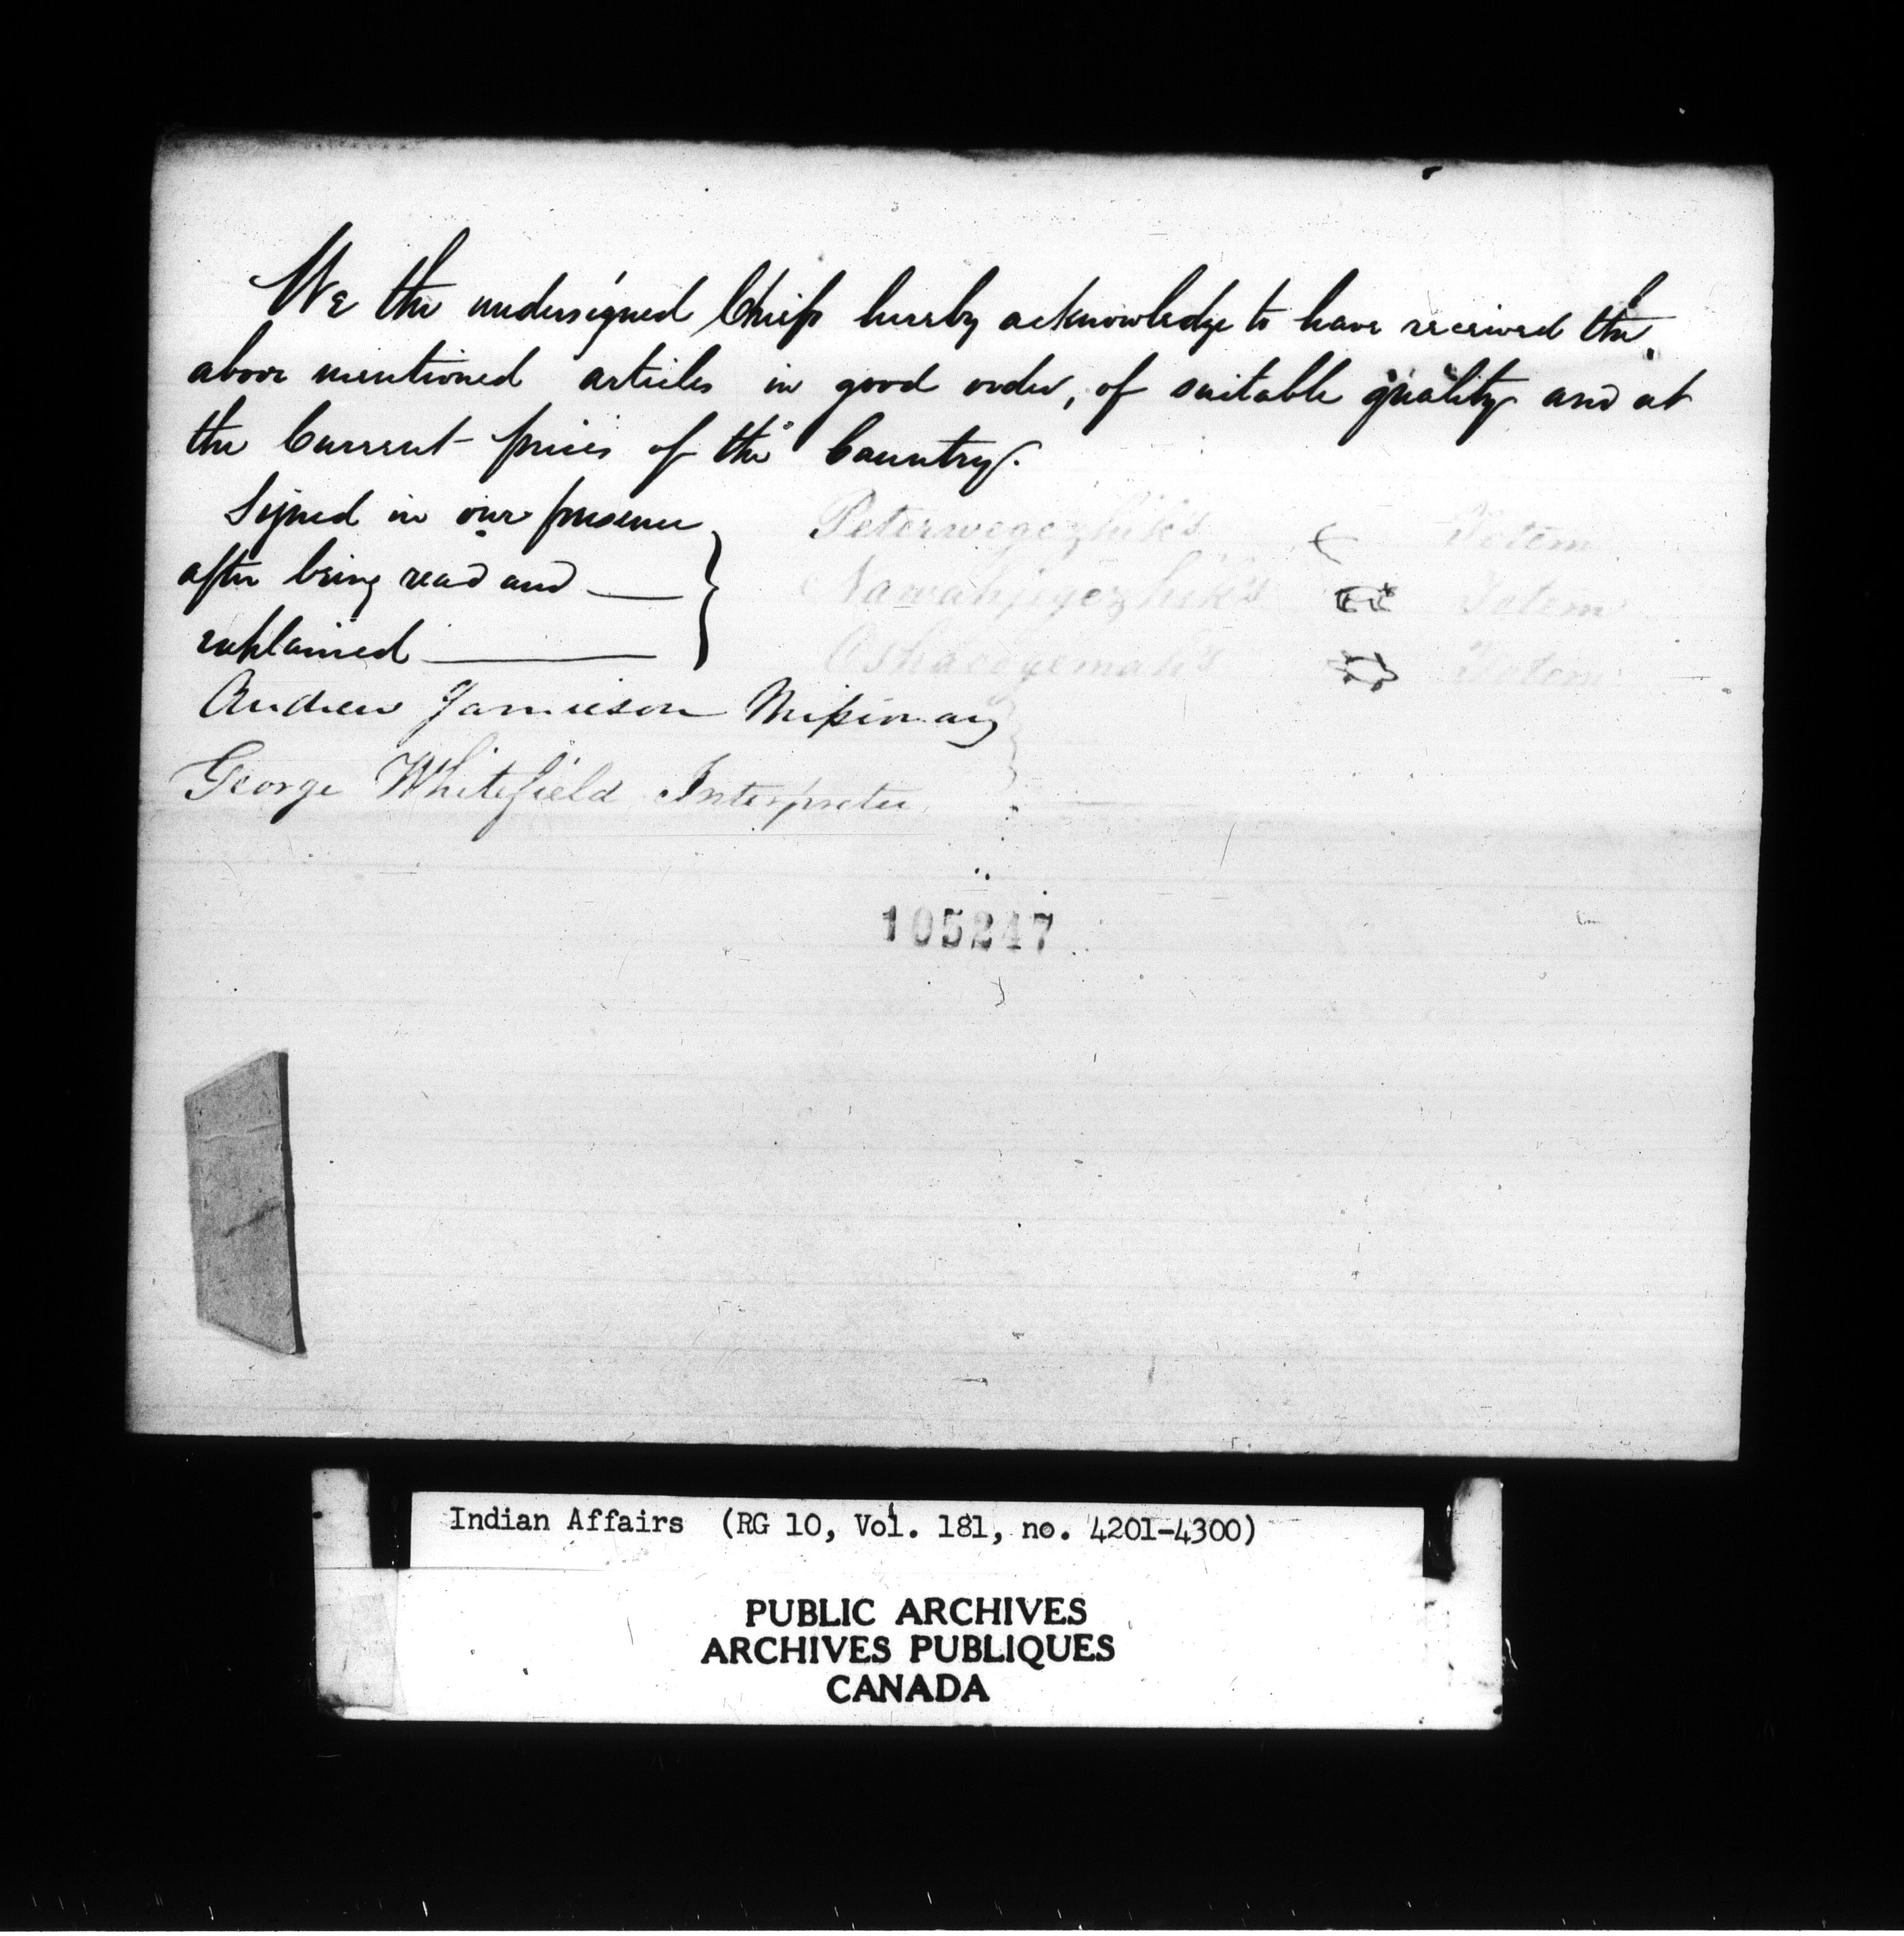 We the undersigned Chiefs hereby acknowledge to have received the
above mentioned articles in good order, of suitable quality and at
the Current prices of the Country.
Signed in our presence
after being read and
explained
Peterwegezhik's Totem
Nawahjegezhik's Totem
Totem
Andrew Jamieson Missionary
George Whitefield Interpreter
105247
Indian Affairs (RG 10, Vol. 181, no. 4201-4300)
PUBLIC ARCHIVES
ARCHIVES PUBLIQUES
CANADA